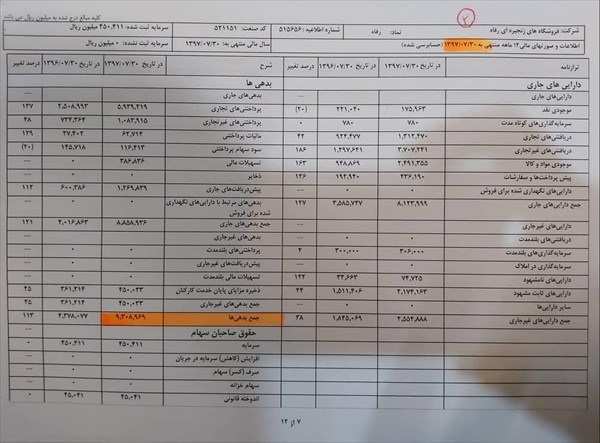 ۲
کلیه مبالغ درج شده به میلیون ریال می باشد
شرکت: فروشگاه های زنجیره ای رفاه نماد: رفاه شماره اطلاعیه: ۵۱۵۶۵۶ کد صنعت: ۵۲۱۱۵۱ سرمایه ثبت شده: ۴۵۰,۴۱۱ میلیون ریال
اطلاعات و صورتهای مالی ۱۲ ماهه منتهی به ۱۳۹۷/۰۷/۳۰ (حسابرسی شده) سال مالی منتهی به: ۱۳۹۷/۰۷/۳۰ سرمایه ثبت نشده: ۰ میلیون ریال
ترازنامه در تاریخ ۱۳۹۷/۰۷/۳۰ در تاریخ ۱۳۹۶/۰۷/۳۰ درصد تغییر شرح در تاریخ ۱۳۹۷/۰۷/۳۰ در تاریخ ۱۳۹۶/۰۷/۳۰ درصد تغییر
دارایی های جاری بدهی ها
دارایی‌های جاری بدهی‌های جاری
موجودی نقد ۱۷۵,۹۶۳ ۲۲۱,۰۴۰ (۲۰) پرداختنی‌های تجاری ۵,۹۳۹,۳۱۹ ۲,۵۰۸,۹۹۳ ۱۳۷
سرمایه‌گذاری‌های کوتاه مدت ۷۸۰ ۷۸۰ ۰ پرداختنی‌های غیرتجاری ۱,۰۸۳,۹۱۵ ۷۳۴,۳۶۴ ۴۸
دریافتنی‌های تجاری ۱,۳۱۲,۴۷۰ ۹۲۴,۴۷۷ ۴۲ مالیات پرداختنی ۶۲,۷۱۴ ۲۷,۴۰۲ ۱۲۹
دریافتنی‌های غیرتجاری ۳,۷۰۷,۲۴۱ ۱,۲۹۷,۶۴۱ ۱۸۶ سود سهام پرداختنی ۱۱۶,۲۱۳ ۱۴۵,۷۱۸ (۲۰)
موجودی مواد و کالا ۲,۴۹۱,۳۵۵ ۹۴۸,۸۶۹ ۱۶۳ تسهیلات مالی ۳۸۶,۸۳۶ ۰ --
پیش پرداخت‌ها و سفارشات ۴۳۶,۱۹۰ ۱۹۲,۹۴۰ ۱۲۶ ذخایر ۰ ۰ --
دارایی‌های نگهداری شده برای فروش ۰ ۰ -- پیش‌دریافت‌های جاری ۱,۲۶۹,۸۳۹ ۶۰۰,۳۸۶ ۱۱۲
جمع دارایی‌های جاری ۸,۱۲۳,۹۹۹ ۳,۵۸۵,۷۴۷ ۱۲۷ بدهی‌های مرتبط با دارایی‌های نگهداری شده برای فروش ۰ ۰ --
دارایی‌های غیرجاری جمع بدهی‌های جاری ۸,۸۵۸,۹۳۶ ۴,۰۱۶,۸۶۳ ۱۲۱
دریافتنی‌های بلندمدت ۰ ۰ -- بدهی‌های غیرجاری
سرمایه‌گذاری‌های بلندمدت ۳۰۶,۰۰۰ ۳۰۰,۰۰۰ ۲ پرداختنی‌های بلندمدت ۰ ۰ --
سرمایه‌گذاری در املاک ۰ ۰ -- پیش‌دریافت‌های غیرجاری ۰ ۰ --
دارایی‌های نامشهود ۷۴,۷۲۵ ۳۳,۶۶۳ ۱۲۲ تسهیلات مالی بلندمدت ۰ ۰ --
دارایی‌های ثابت مشهود ۲,۱۷۴,۱۶۳ ۱,۵۱۱,۴۰۶ ۴۴ ذخیره مزایای پایان خدمت کارکنان ۴۵۰,۰۳۳ ۳۶۱,۲۱۴ ۲۵
سایر دارایی‌ها ۰ ۰ -- جمع بدهی‌های غیرجاری ۴۵۰,۰۳۳ ۳۶۱,۲۱۴ ۲۵
جمع دارایی‌های غیرجاری ۲,۵۵۴,۸۸۸ ۱,۸۴۵,۰۶۹ ۳۸ جمع بدهی‌ها ۹,۳۰۸,۹۶۹ ۴,۳۷۸,۰۷۷ ۱۱۳
حقوق صاحبان سهام
سرمایه ۴۵۰,۴۱۱ ۴۵۰,۴۱۱ ۰
افزایش (کاهش) سرمایه در جریان ۰ ۰ --
صرف (کسر) سهام ۰ ۰ --
سهام خزانه ۰ ۰ --
اندوخته قانونی ۴۵,۰۴۱ ۴۵,۰۴۱ ۰
۷ از ۱۲